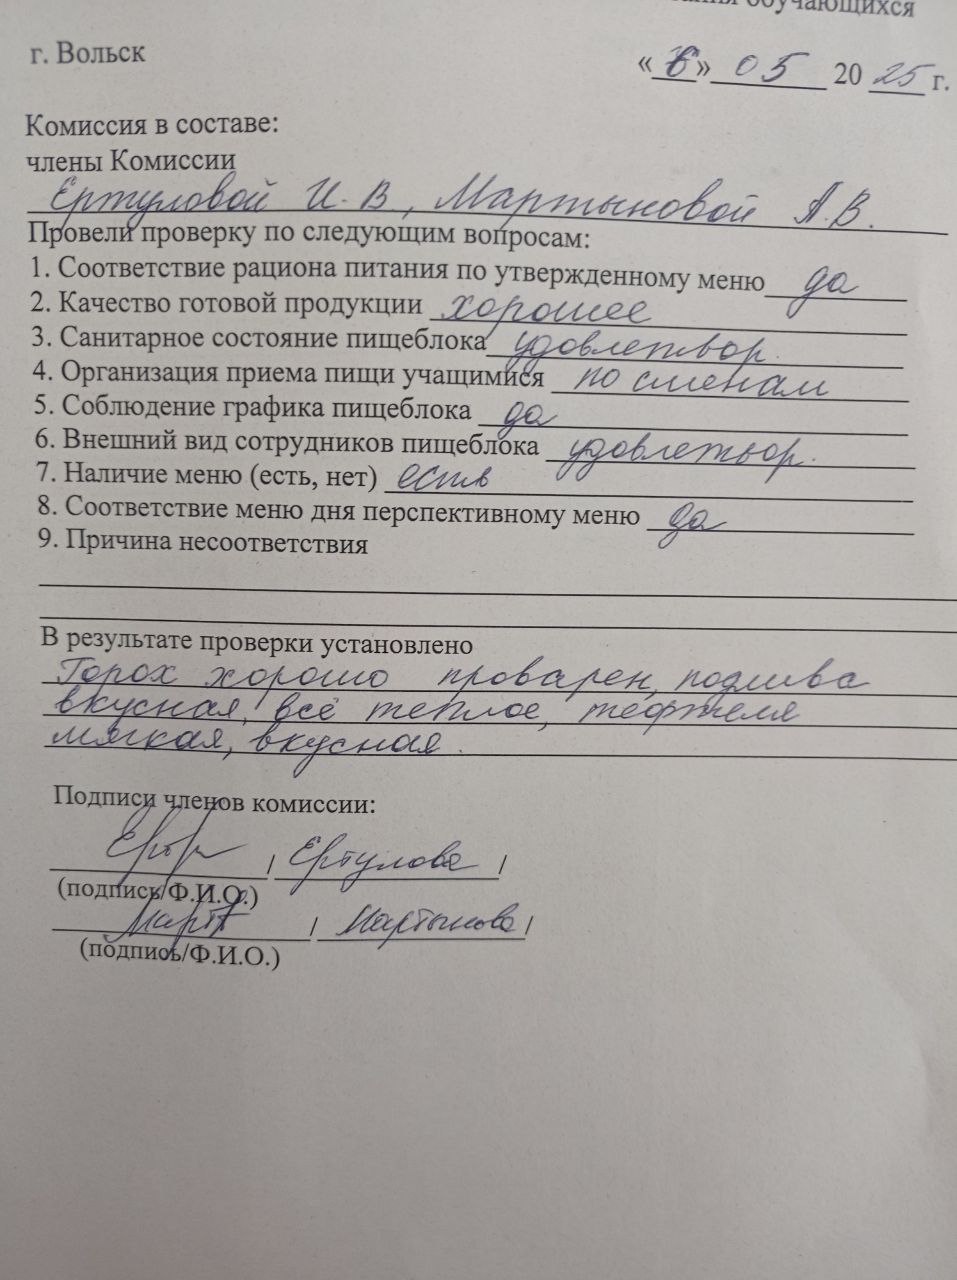 обучающихся
г. Вольск
«6» 05 2025 г.
Комиссия в составе:
члены Комиссии
Ертуловой И. В, Мартыновой А. В.
Провели проверку по следующим вопросам:
1. Соответствие рациона питания по утвержденному меню да
2. Качество готовой продукции хорошее
3. Санитарное состояние пищеблока удовлетвор.
4. Организация приема пищи учащимися по сменам
5. Соблюдение графика пищеблока да
6. Внешний вид сотрудников пищеблока удовлетвор.
7. Наличие меню (есть, нет) есть
8. Соответствие меню дня перспективному меню да
9. Причина несоответствия
В результате проверки установлено
Горох хорошо проварен, подлива
вкусная, всё теплое, тефтеля
мягкая, вкусная.
Подписи членов комиссии:
/ Ертулова /
(подпись/Ф.И.О.)
/ Мартынова /
(подпись/Ф.И.О.)